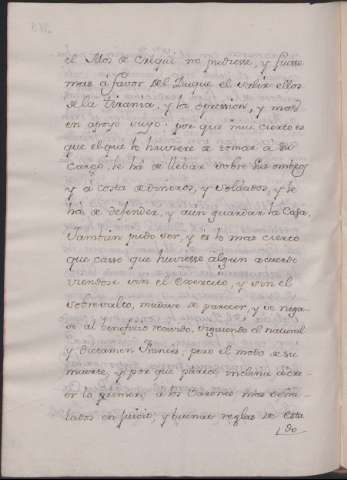 el Mos de Crequi no pudiesse, y fuesse
mas á favor del Duque el salir ellos
de la tirania, y la opresion, y mas
en apoyo suyo: por que mui cierto es
que el que lo huviere de tomar á su
Cargo, le há de llebar sobre sus ombros
y á costa de dineros, y soldados, y se
há de defender, y aun guardar la Casa.
Tambien pudo ser, y és lo mas cierto
que caso que huviesse algun acuerdo
viendose sin el Exercito, y sin el
sobresalto, mudase de parecer, y se nega-
se al beneficio siguiendo el natural
y dictamen Frances, pero el modo de su
muerte, y por que parece inclina á cre-
er lo primero, á los Varones mas
en juicio, y buenas reglas de Esta
do